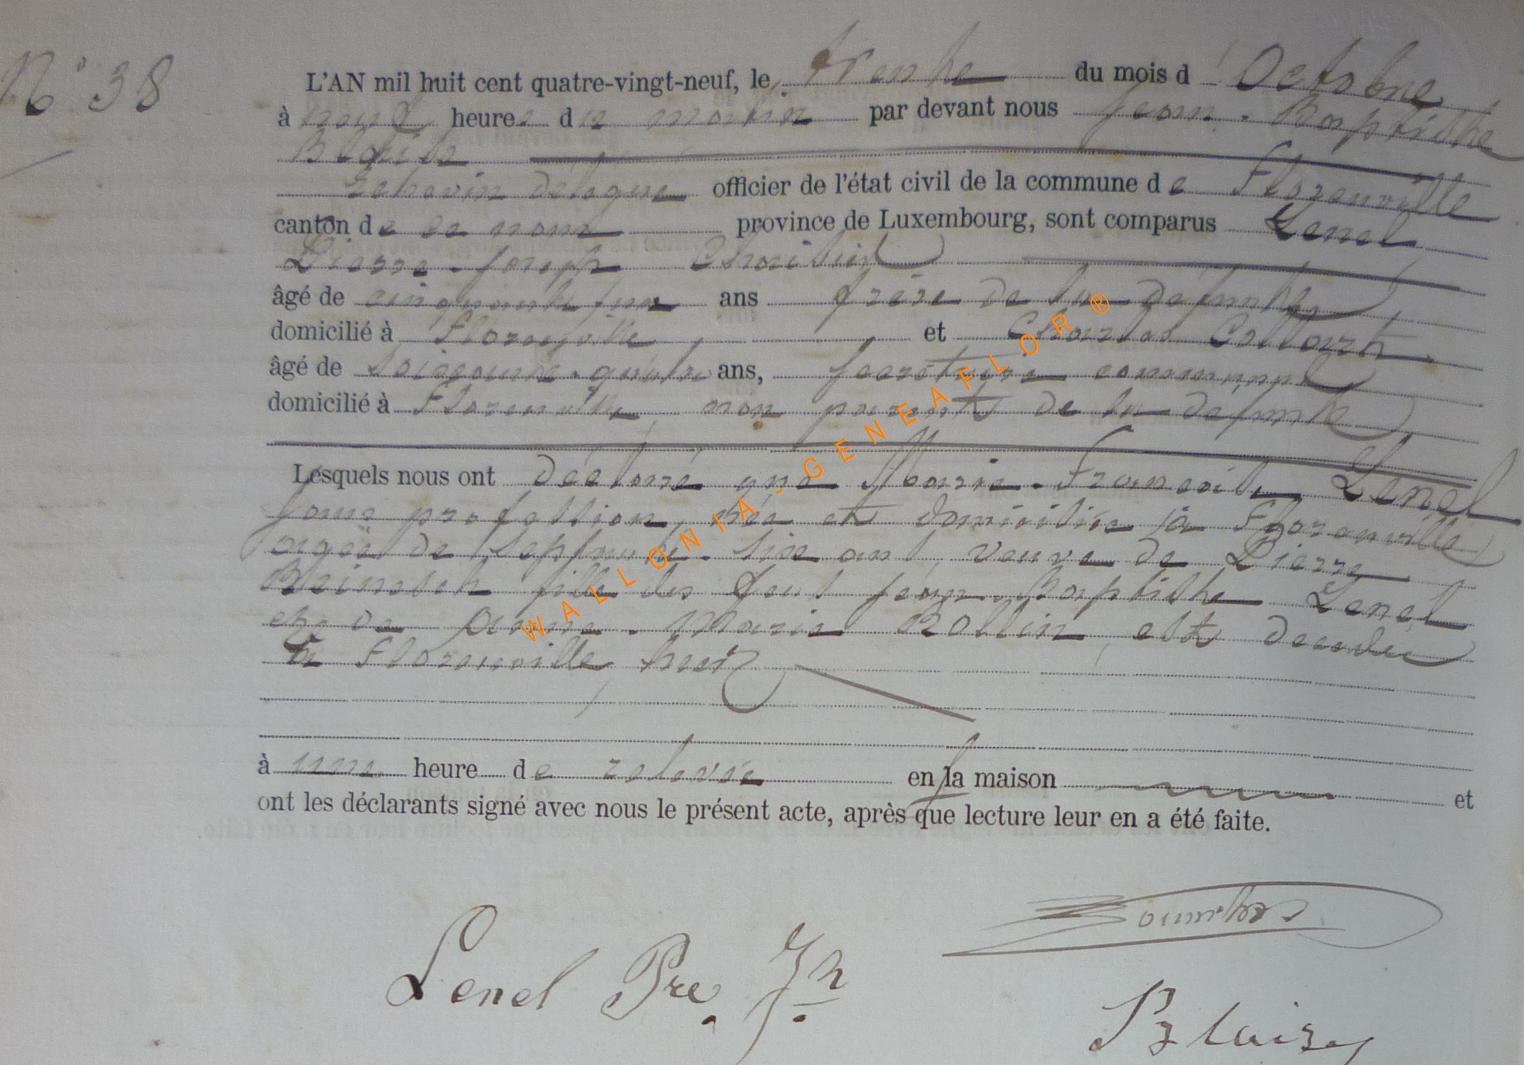 N° 38
L'AN mil huit cent quatre-vingt-neuf, le trente du mois d'Octobre
à neuf heures du matin par devant nous Jean-Baptiste
Blaise
Echevin délégué officier de l'état civil de la commune de Florenville
canton de ce nom province de Luxembourg, sont comparus Lenel
Pierre-Joseph
âgé de ans frère de la défunte
domicilié à Florenville et Charles
âgé de soixante-quatre ans, secrétaire communal
domicilié à Florenville non parent de la défunte
Lesquels nous ont déclaré que Marie-Françoise Lenel
sans profession, née et domiciliée à Florenville
âgée de septante-six ans, veuve de Pierre
fille des feus Jean-Baptiste Lenel
et de Anne-Marie Rollin est décédée
à Florenville hier
à une heure de relevée en la maison et
ont les déclarants signé avec nous le présent acte, après que lecture leur en a été faite.
Lenel Pre. Jh
Blaise
WALLONIA-GENEAFLOR®